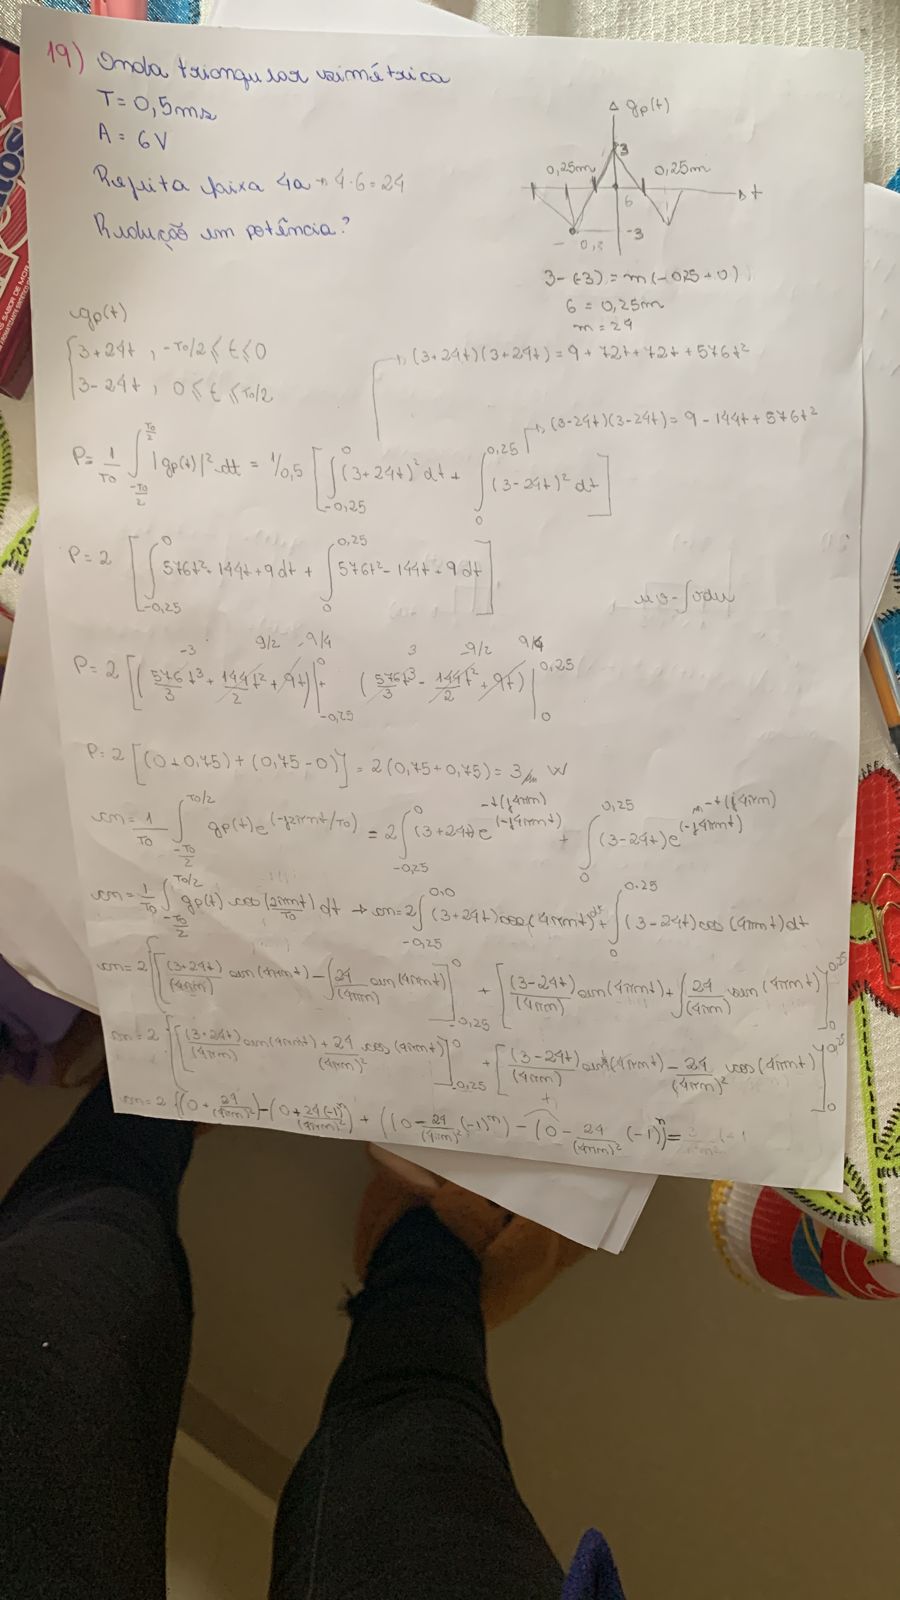 19) Onda triangular simétrica
T = 0,5ms
A = 6V
Rejeita faixa 4a → 4·6 = 24
Redução em potência?
gp(t)
3
0,25m
0,25m
t
6
-3
3-(-3) = m(-0,25+0)
6 = 0,25m
m = 24
gp(t)
3+24t, -T0/2 ≤ t ≤ 0
3-24t, 0 ≤ t ≤ T0/2
(3+24t)(3+24t) = 9+72t+72t+576t²
(3-24t)(3-24t) = 9-144t+576t²
P = 1/T0 ∫_{-T0/2}^{T0/2} |gp(t)|² dt = 1/0,5 [∫_{-0,25}^{0} (3+24t)² dt + ∫_{0}^{0,25} (3-24t)² dt]
P = 2 [∫_{-0,25}^{0} 576t²+144t+9 dt + ∫_{0}^{0,25} 576t²-144t+9 dt]
uv-∫vdu
-3 9/2 -9/4 3 -9/2 9/4
P = 2 [(576t³/3 + 144t²/2 + 9t)|_{-0,25}^{0} + (576t³/3 - 144t²/2 + 9t)|_{0}^{0,25}]
P = 2 [(0+0,75)+(0,75-0)] = 2(0,75+0,75) = 3 W
cn = 1/T0 ∫_{-T0/2}^{T0/2} gp(t)e^(-j2πnt/T0) = 2∫_{-0,25}^{0} (3+24t)e^(-j4πnt) + ∫_{0}^{0,25} (3-24t)e^(-j4πnt)
-t(j4πn)
-t(j4πn)
cn = 1/T0 ∫_{-T0/2}^{T0/2} gp(t) cos(2πnt/T0) dt → cn = 2∫_{-0,25}^{0,0} (3+24t)cos(4πnt)dt + ∫_{0}^{0,25} (3-24t)cos(4πnt)dt
cn = 2{[(3+24t)/(4πn) sen(4πnt) - ∫24/(4πn) sen(4πnt)]_{-0,25}^{0} + [(3-24t)/(4πn) sen(4πnt) + ∫24/(4πn) sen(4πnt)]_{0}^{0,25}
cn = 2{[(3+24t)/(4πn) sen(4πnt) + 24/(4πn)² cos(4πnt)]_{-0,25}^{0} + [(3-24t)/(4πn) sen(4πnt) - 24/(4πn)² cos(4πnt)]_{0}^{0,25}
cn = 2{(0+24/(4πn)²)-(0+24(-1)^n/(4πn)²) + ((0-24/(4πn)² (-1)^n) - (0-24/(4πn)² (-1)^n)} =